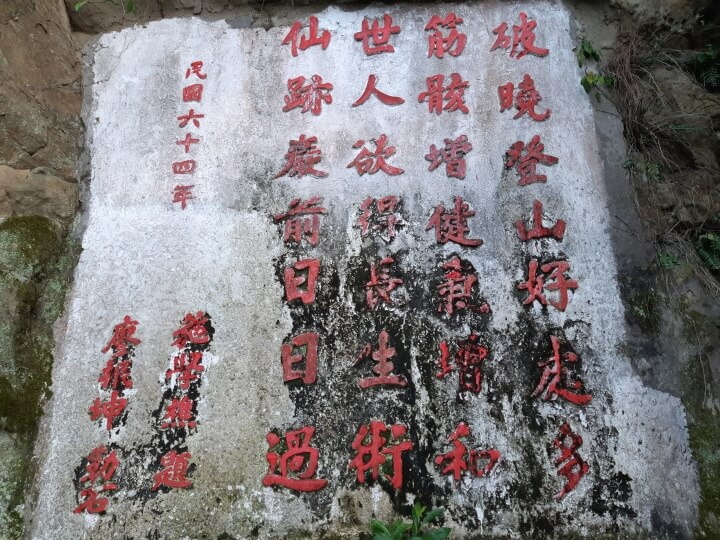 破曉登山好處多
筋骸增健氣增和
世人欲得長生術
仙跡巖前日日過
民國六十四年
施學樵題
廖振坤勒石